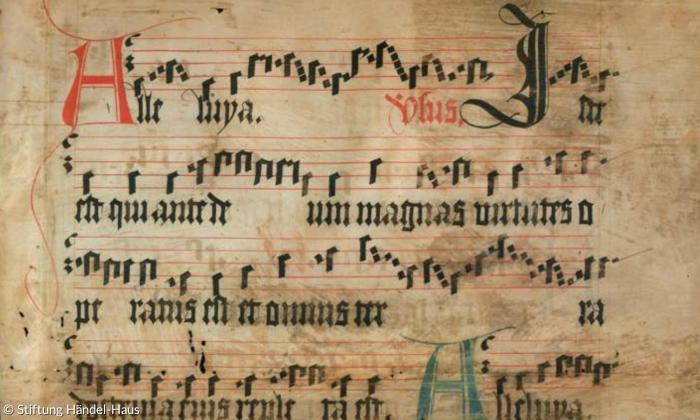 Alle luya. Vſus. Iſte
eſt qui ante de um magnas virtutes o
pe ratus eſt et omnis ter ra
eius reple ta eſt. Alleluya
© Stiftung Händel-Haus